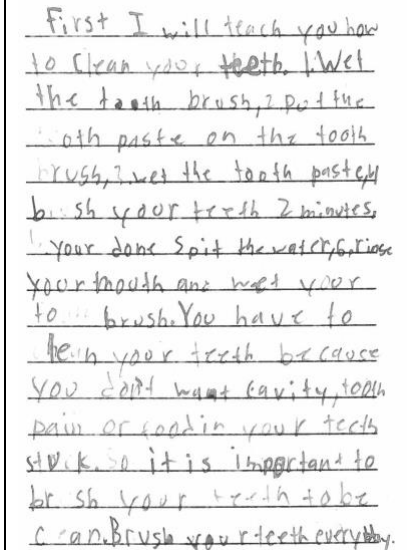 First I will teach you how
to Clean your teeth. 1. Wet
the tooth brush, 2 put the
oth paste on the tooth
rush, 3. wet the tooth paste, 4
b sh your teeth 2 minutes,
your done Spit the water, 6, rinse
your mouth and wet your
to brush. You have to
lean your teeth because
you don't want Cavity, tooth
pain or food in your teeth
stuck. So it is important to
br sh your teeth to be
c an. Brush your teeth everyday.